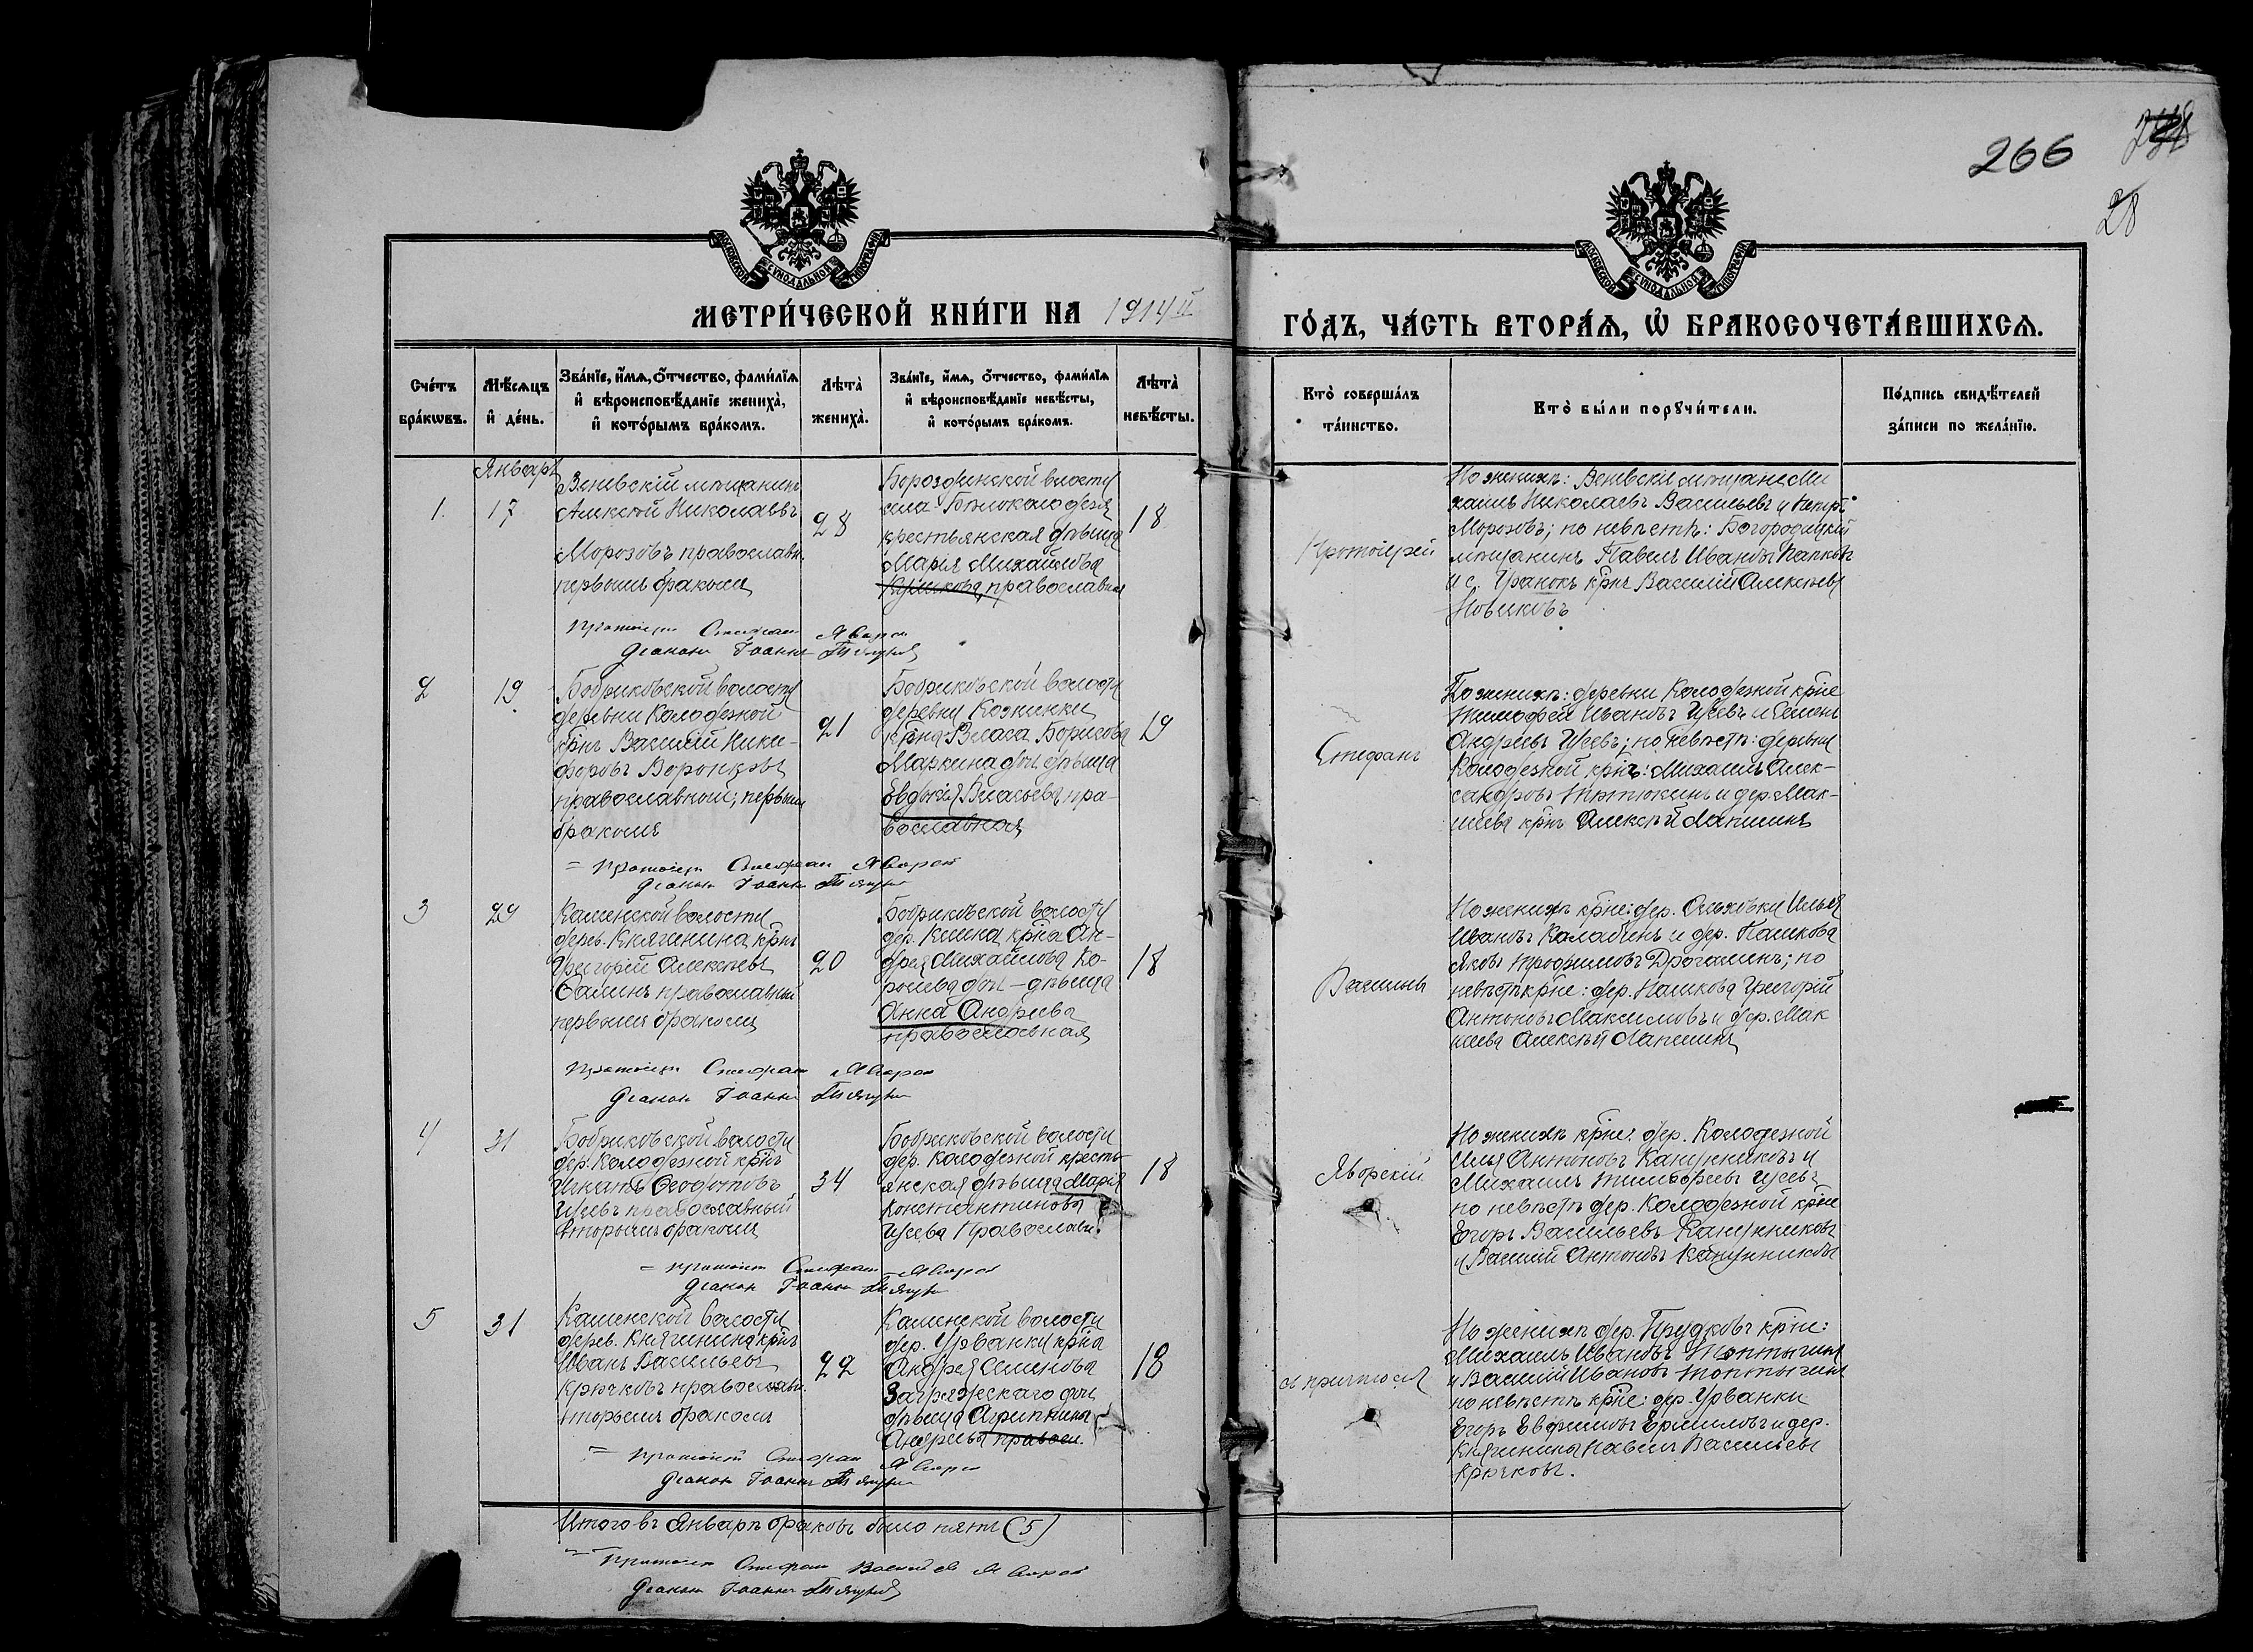 266
28
МОСКОВСКОЙ СѴНОДАЛЬНОЙ ТИПОГРАФІИ
МЕТРИ́ЧЕСКОЙ КНИ́ГИ НА 1914 й
МОСКОВСКОЙ СѴНОДАЛЬНОЙ ТИПОГРАФІИ
ГО́ДЪ, ЧА́СТЬ ВТОРА́Ѧ, Ѡ҆ БРАКОСОЧЕТА́ВШИХСѦ.
Сче́тъ бра́кѡвъ.
Мѣ́сѧцъ и҆ де́нь.
Зва́нїе, и҆́мѧ, ѻ҆́тчество, фами́лїѧ и҆ вѣроисповѣ́данїе жениха̀, и҆ кото́рымъ бра́комъ.
Лѣта̀ жениха̀.
Зва́нїе, и҆́мѧ, ѻ҆́тчество, фами́лїѧ и҆ вѣроисповѣ́данїе невѣ́сты, и҆ кото́рымъ бра́комъ.
Лѣта̀ невѣ́сты.
Кто̀ соверша́лъ та́инство.
Кто̀ бы́ли порꙋчи́тели.
По́дпись свидѣ́телей за́писи по жела́нїю.
Январь
1.
17
Веневскій мѣщанинъ
Алексѣй Николаевъ
Морозовъ православн.
первымъ бракомъ
28
Бороздинской волости
села
крестьянская дѣвица
Марія Михайлова
православная
18
Протоіерей
По женихѣ: Веневскіе мѣщане Ми
хаилъ Николаевъ Васильевъ и
Морозовъ; по невѣстѣ: Богородицкій
мѣщанинъ Павелъ Ивановъ
и с. крнъ Василій Алексѣевъ
Новиковъ
Протоіерей Стефанъ Яворскій
Діаконъ Іоаннъ
2
19
Бобриковской волости
деревни Колодезной
крнъ Василій Ники-
форовъ Воронковъ
православной; первымъ
бракомъ
21
Бобриковской волости
деревни
крна Власа Борисова
Маркина дочь дѣвица
Евдокія Власьева, пра-
вославная
19
Стефанъ
По женихѣ: деревни Колодезной крне
Тимофей Ивановъ Гусевъ и Семенъ
Андреевъ Гусевъ; по невѣстѣ: деревни
Колодезной крнъ: Михаилъ Алек-
сандровъ и дер. Мак-
шеева крнъ Алексѣй Лапшинъ
Протоіерей Стефанъ Яворскій
Діаконъ Іоаннъ
3
29
Каменской волости
дерев. Княгинина крнъ
Григорій Алексѣевъ
православный
первымъ бракомъ
20
Бобриковской волости
дер. крна Ан-
дрея Михайлова Ко-
ролева дочь - дѣвица
Анна Андреева
православная
18
Васильевъ
По женихѣ крне: дер. Ольховки Илья
Ивановъ Калабинъ и дер. Пашкова
Яковъ Трофимовъ; по
невѣстѣ крне: дер. Пашкова Григорій
Антоновъ Максимовъ и дер. Мак
шеева Алексѣй Лапшинъ
Протоіерей Стефанъ Яворскій
Діаконъ Іоаннъ
4
31
Бобриковской волости
дер. Колодезной крнъ
Игнатъ Ѳеодотовъ
Гусевъ православный
вторымъ бракомъ
34
Бобриковской волости
дер. Колодезной кресть-
янская дѣвица Марія
Константинова
Гусева Православн.
18
Яворскій
По женихѣ крне: дер. Колодезной
Илья Антоновъ Канунниковъ и
Михаилъ Тимофеевъ Гусевъ
по невѣстѣ дер. Колодезной крне
Егоръ Васильевъ Канунниковъ
и Василій Антоновъ Канунниковъ
Протоіерей Стефанъ Яворскій
Діаконъ Іоаннъ
5
31
Каменской волости
дерев. Княгинина крнъ
Иванъ Васильевъ
Крючковъ православн.
вторымъ бракомъ
22
Каменской волости
дер. Урванки крна
Андрея Семенова
Загряжскаго дочь
дѣвица Агриппина
Андреева правосл.
18
съ причтомъ
По женихѣ дер. Прудковъ крне:
Михаилъ Ивановъ Топтыгинъ
и Василій Ивановъ Топтыгинъ
по невѣстѣ крне: дер. Урванки
Егоръ Евфимовъ Ермиловъ и дер.
Княгинина Павелъ Васильевъ
Крючковъ.
Протоіерей Стефанъ Яворскій
Діаконъ Іоаннъ
Итого въ Январѣ браковъ было пять (5)
Протоіерей Стефанъ Васильевъ Яворскій
Діаконъ Іоаннъ